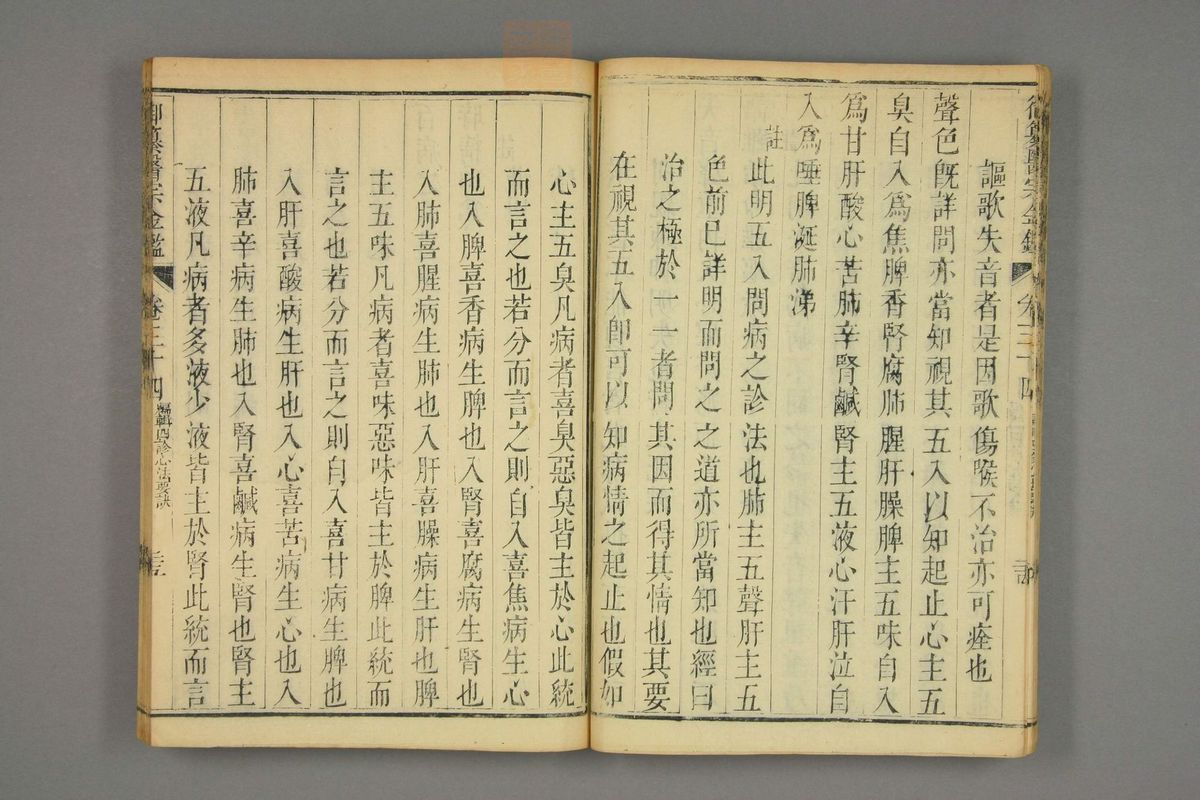 御纂醫宗金鑑 卷三十四
謳歌失音者是因歌傷喉不治亦可痊也
聲色既詳問亦當知視其五入以知起止心主五
臭自入爲焦脾香腎腐肺腥肝臊脾主五味自入
爲甘肝酸心苦肺辛腎鹹腎主五液心汗肝泣自
入爲唾脾涎肺涕
註此明五入問病之診法也肺主五聲肝主五
色前已詳明而問之之道亦所當知也經曰
治之極於一一者問其因而得其情也其要
在視其五入卽可以知病情之起止也假如
心主五臭凡病者喜臭惡臭皆主於心此統
而言之也若分而言之則自入喜焦病生心
也入脾喜香病生脾也入腎喜腐病生腎也
入肺喜腥病生肺也入肝喜臊病生肝也脾
主五味凡病者喜味惡味皆主於脾此統而
言之也若分而言之則自入喜甘病生脾也
入肝喜酸病生肝也入心喜苦病生心也入
肺喜辛病生肺也入腎喜鹹病生腎也腎主
五液凡病者多液少液皆主於腎此統而言
御纂醫宗金鑑 卷三十四 編輯四診心法要訣